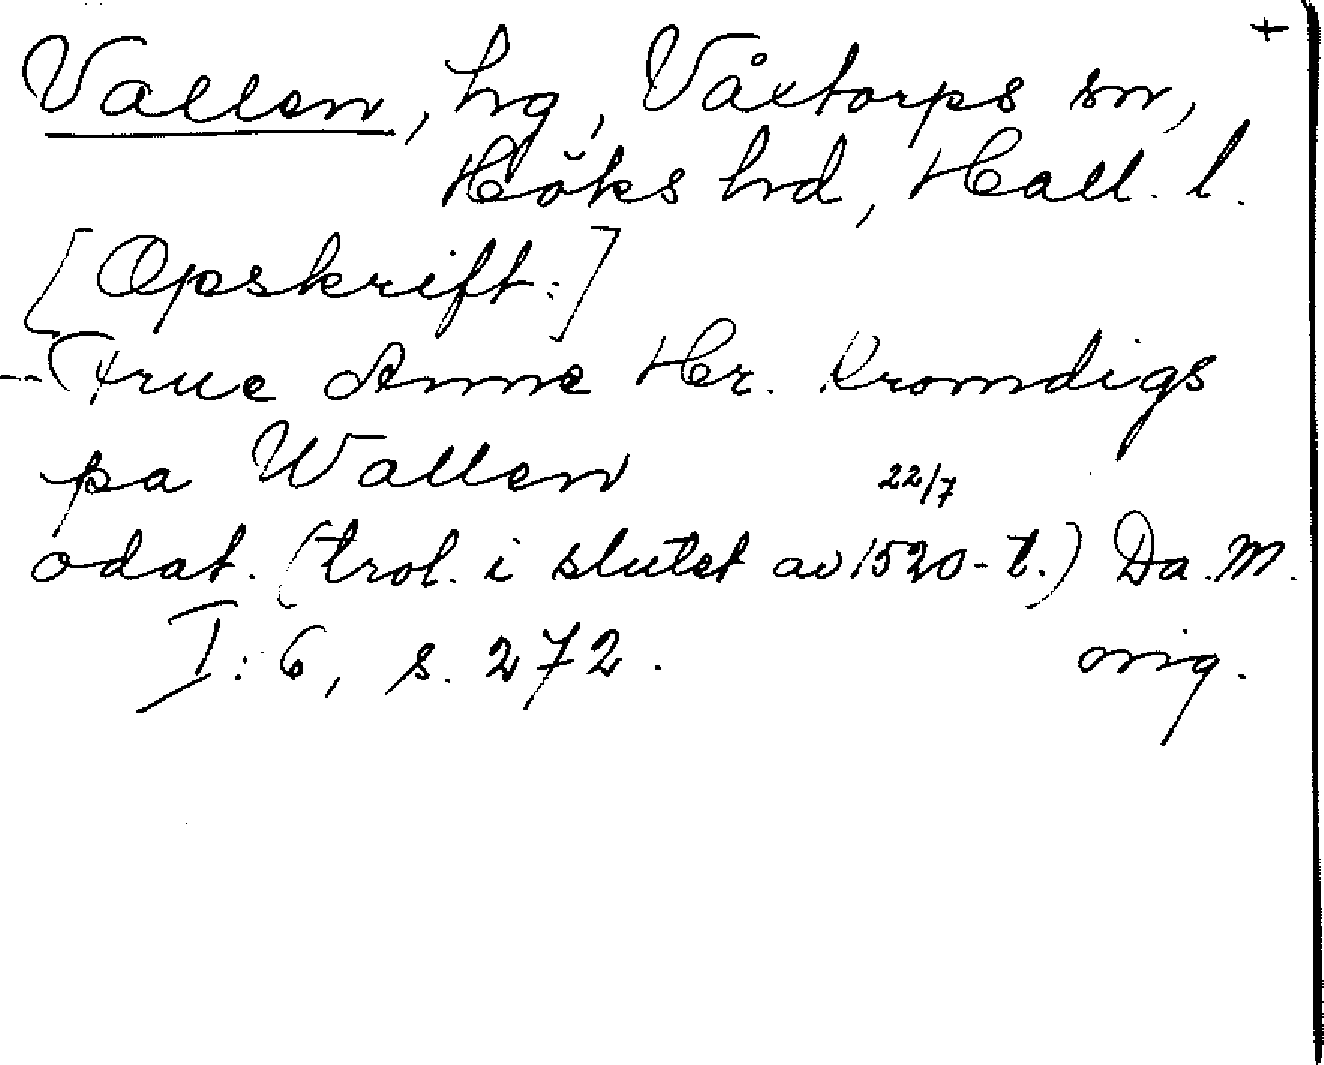 +
Vallen, hg, Våxtorps sn,
Höks hrd, Hall. l.
[Opskrift:]
-- Frue Anne Hr. Kromdigs
pa Wallen 22/7
odat. (trol. i slutet av 1520-t.) Da. M.
I:6, s. 272. orig.